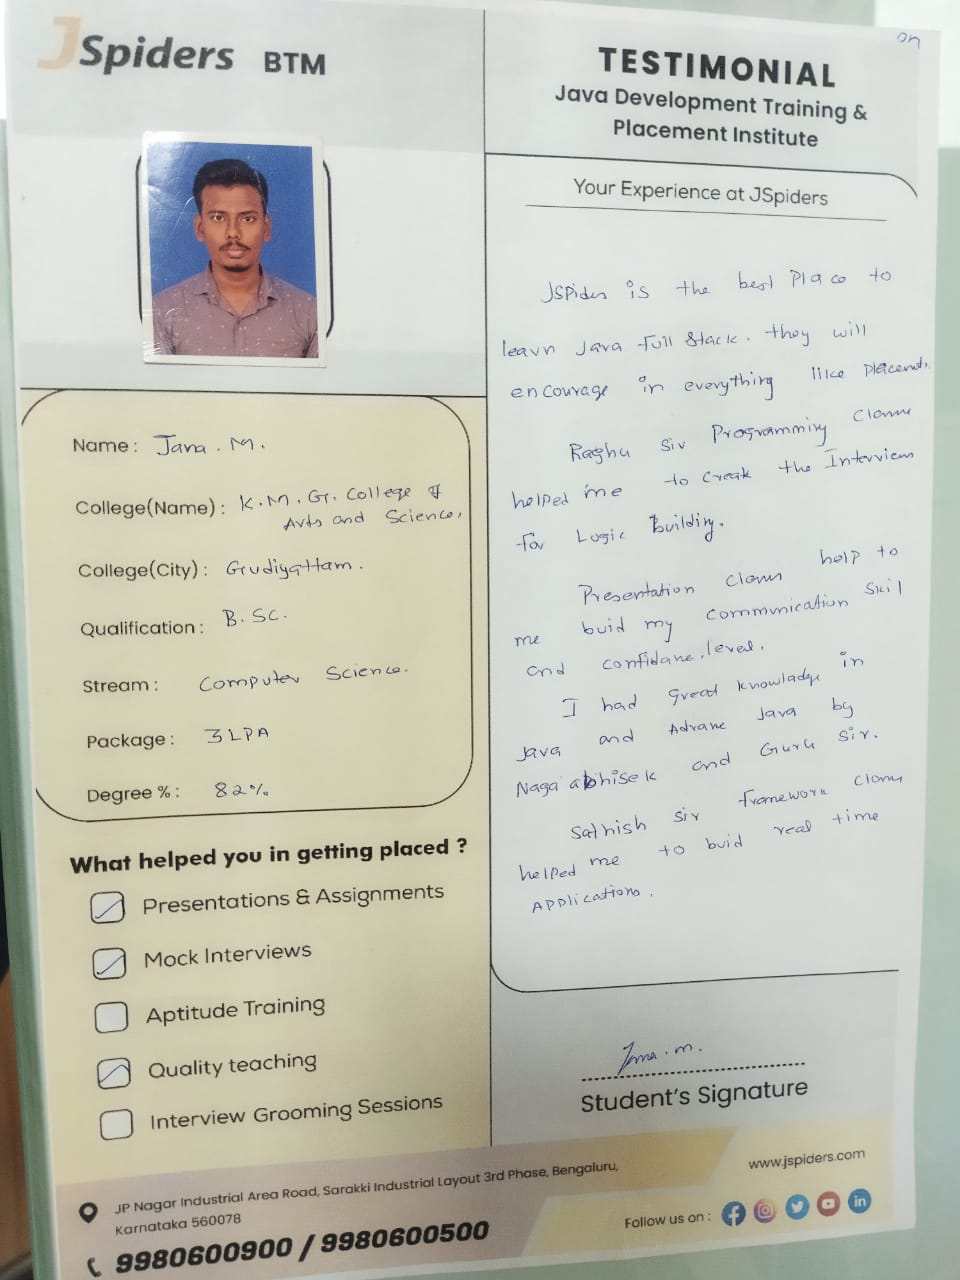 JSpiders BTM
on
TESTIMONIAL
Java Development Training &
Placement Institute
Your Experience at JSpiders
JSPider is the best Place to
learn Java full Stack. they will
encourage in everything like placements.
Raghu Sir Programming Classes
helped me to Creak the Interview
for Logic Building.
Presentation class help to
me buid my communication Skil
and confidane level.
I had great knowladge in
Java and Advane Java by
Naga abhisek and Guru Sir.
Sathish sir framework class
helped me to buid real time
Applications.
Student's Signature
Jana. m.
Name : Jana . M.
College(Name) : K.M.G. College of
Arts and Science.
College(City) : Gudiyattam.
Qualification : B.SC.
Stream : Computer Science.
Package : 3 LPA
Degree % : 82%
What helped you in getting placed ?
Presentations & Assignments
Mock Interviews
Aptitude Training
Quality teaching
Interview Grooming Sessions
JP Nagar Industrial Area Road, Sarakki Industrial Layout 3rd Phase, Bengaluru,
Karnataka 560078
9980600900 / 9980600500
www.jspiders.com
Follow us on :